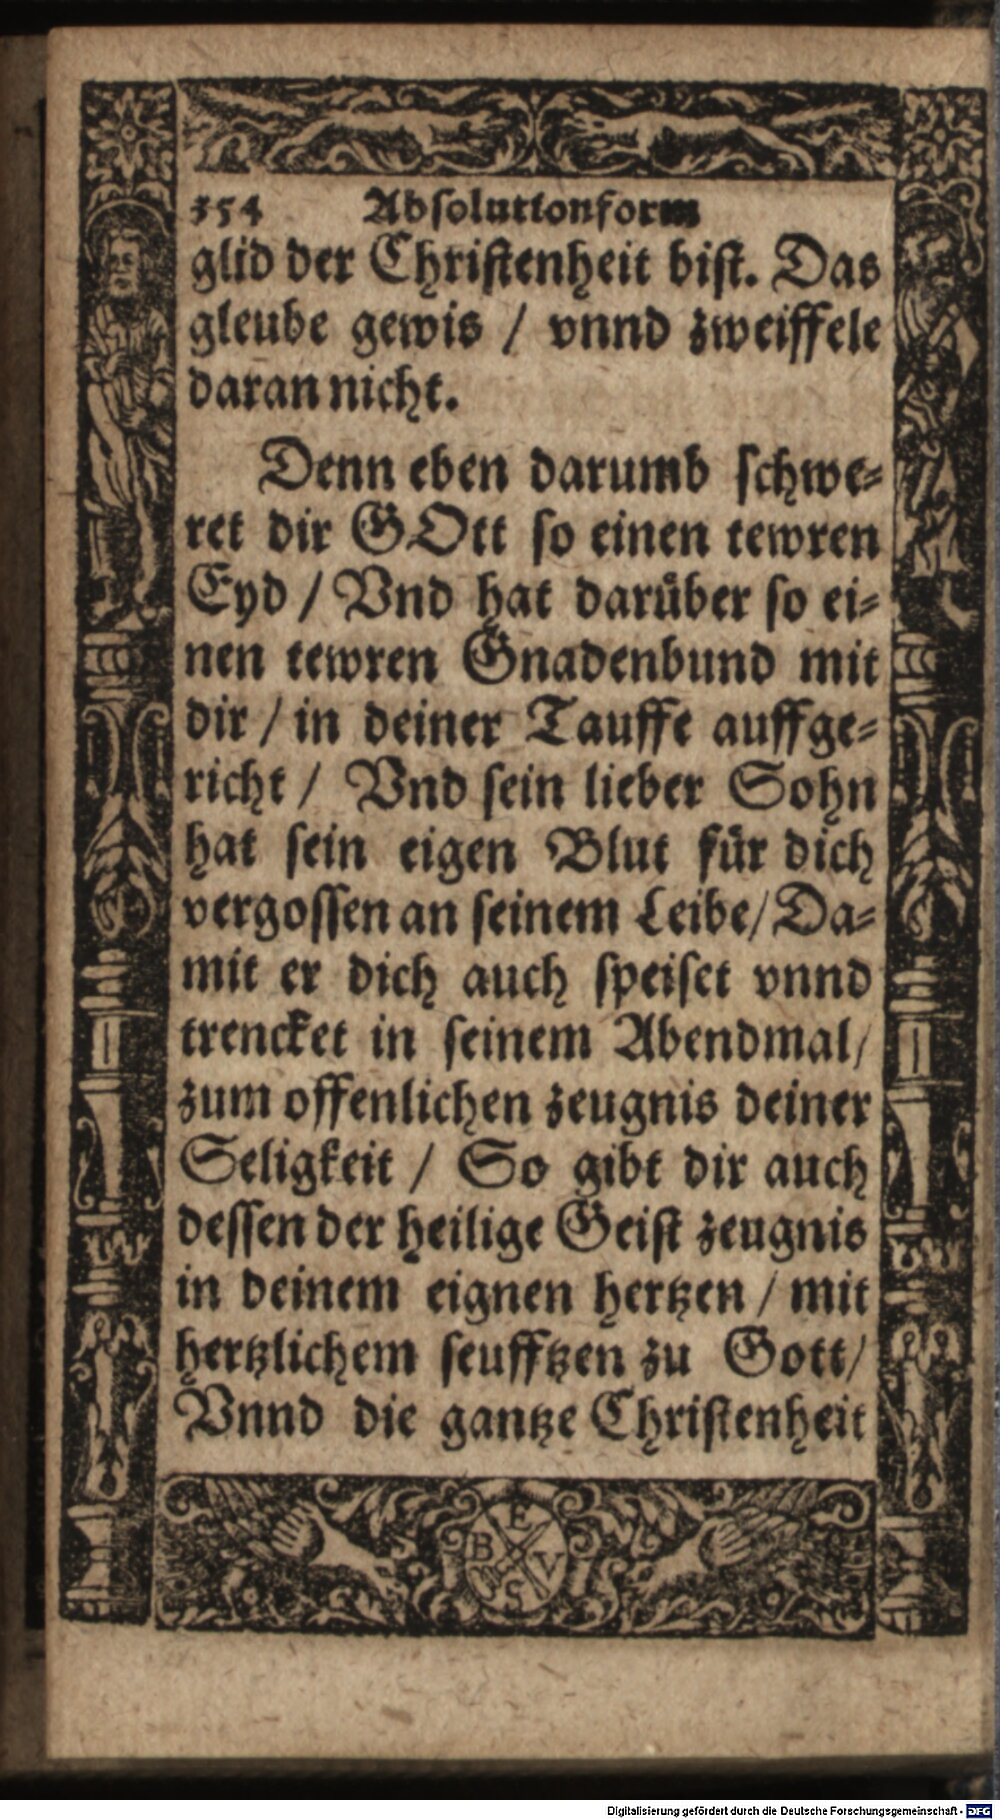 354 Absolutionform
glid der Christenheit bist. Das
gleube gewis / vnnd zweiffele
daran nicht.
Denn eben darumb schwe-
ret dir GOtt so einen tewren
Eyd / Vnd hat darüber so ei-
nen tewren Gnadenbund mit
dir / in deiner Tauffe auffge-
richt / Vnd sein lieber Sohn
hat sein eigen Blut für dich
vergossen an seinem Leibe / Da-
mit er dich auch speiset vnnd
trencket in seinem Abendmal /
zum offenlichen zeugnis deiner
Seligkeit / So gibt dir auch
dessen der heilige Geist zeugnis
in deinem eignen hertzen / mit
hertzlichem seufftzen zu Gott /
Vnnd die gantze Christenheit
E
B V
S
Digitalisierung gefördert durch die Deutsche Forschungsgemeinschaft - DFG